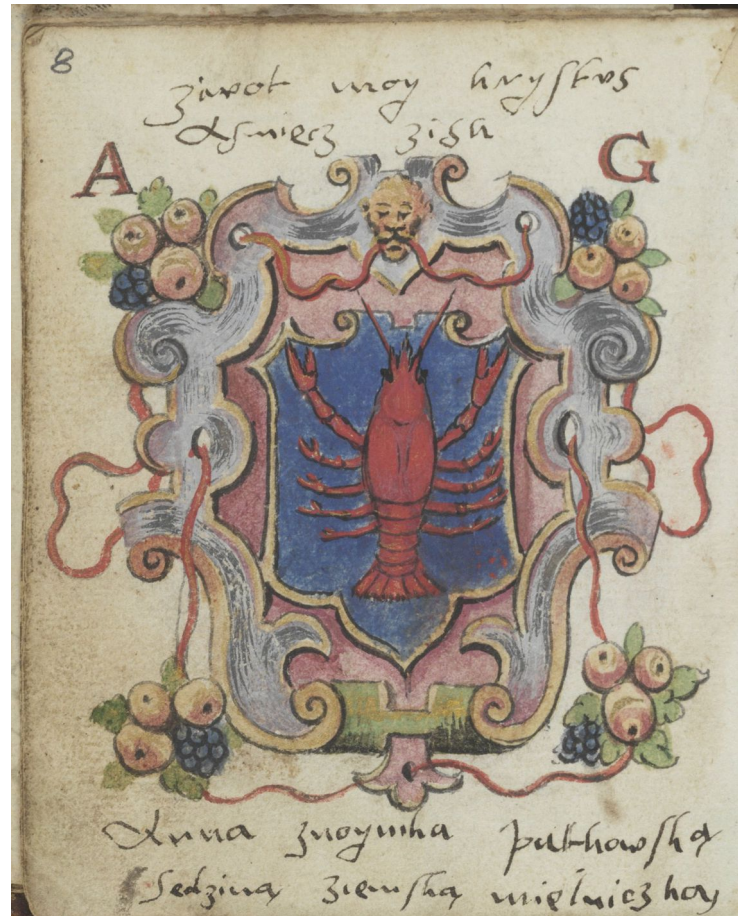 8
ziwot moy krystvs
A smięcz zisk
A G
Anna znoynka putkowska
sedzina ziemska mielniczkay